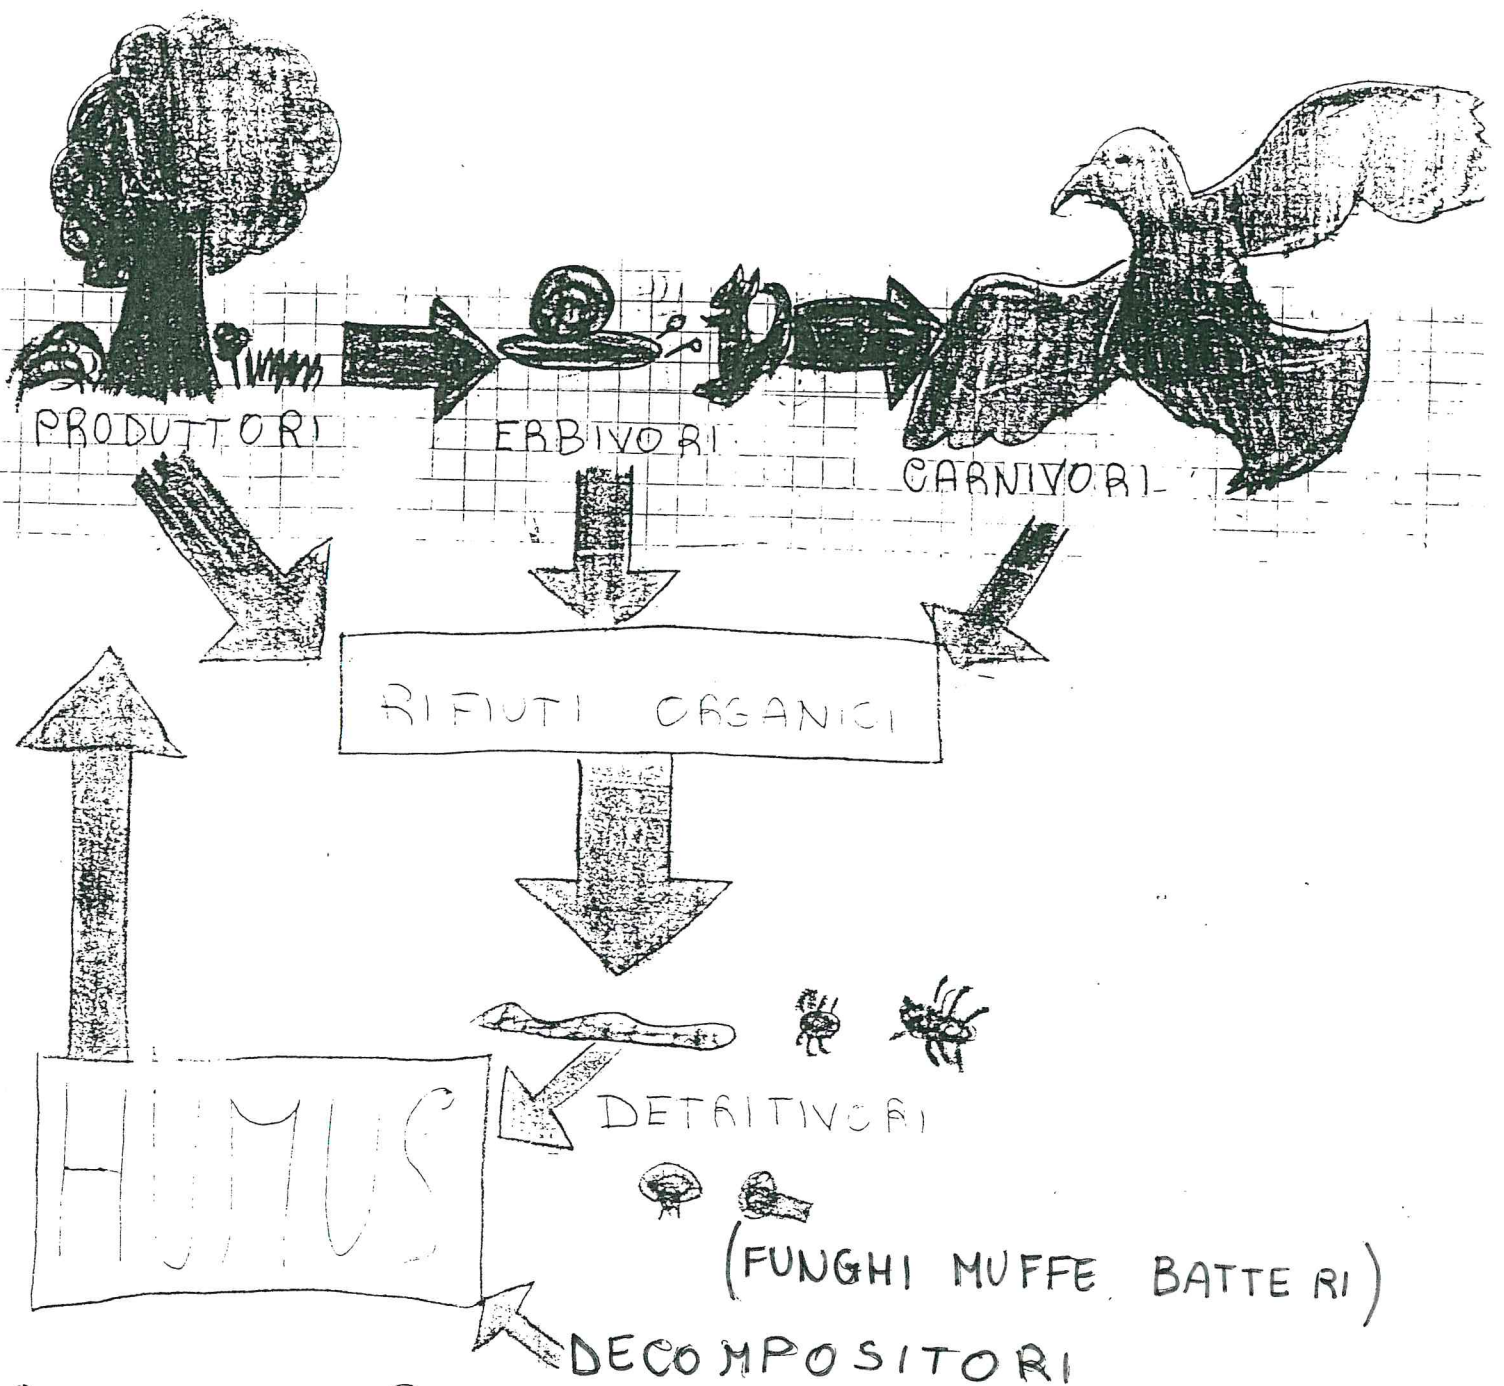 PRODUTTORI
ERBIVORI
CARNIVORI
RIFIUTI ORGANICI
DETRITIVORI
HUMUS
(FUNGHI MUFFE BATTERI)
DECOMPOSITORI